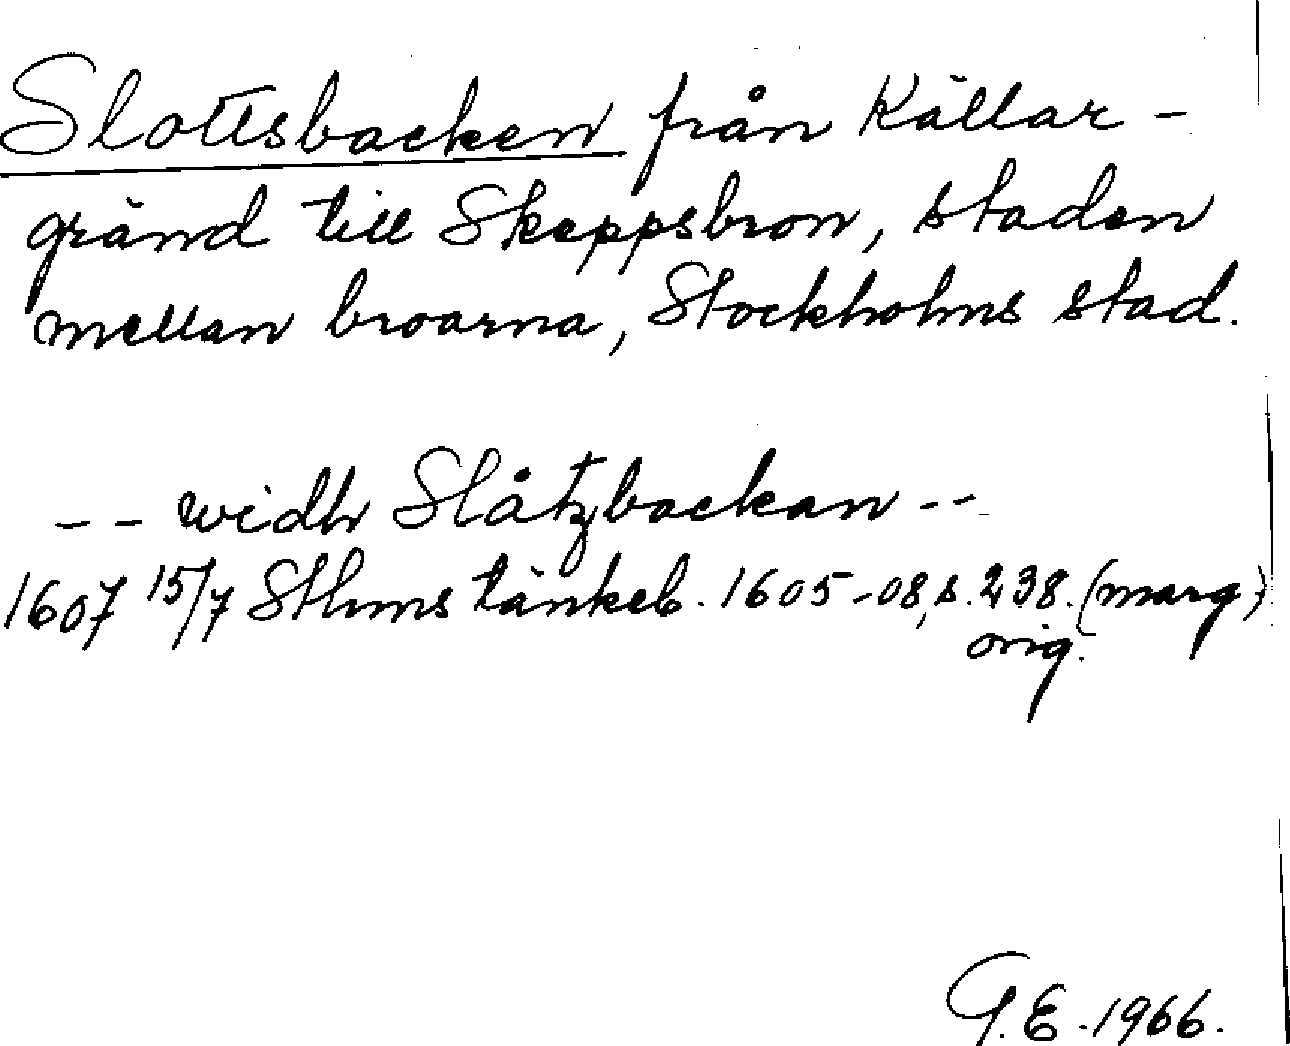 Slottsbacken från Källar-
gränd till Skeppsbron, staden
mellan broarna, Stockholms stad.
-- widh Slåtzbackan --
1607 15/7 Sthms tänkeb. 1605-08, s. 238. (marg.)
orig.
G.E. 1966.